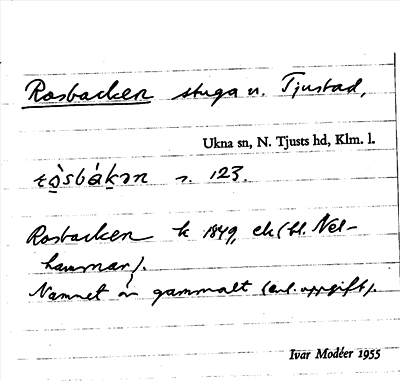 Rosbacken stuga u. Tjustad,
Ukna sn, N. Tjusts hd, Klm. l.
rò̱sbáḵən s. 123.
Rosbacken k 1849, ek (bl. Nel-
hammar).
Namnet är gammalt (enl. uppgift).
Ivar Modéer 1955